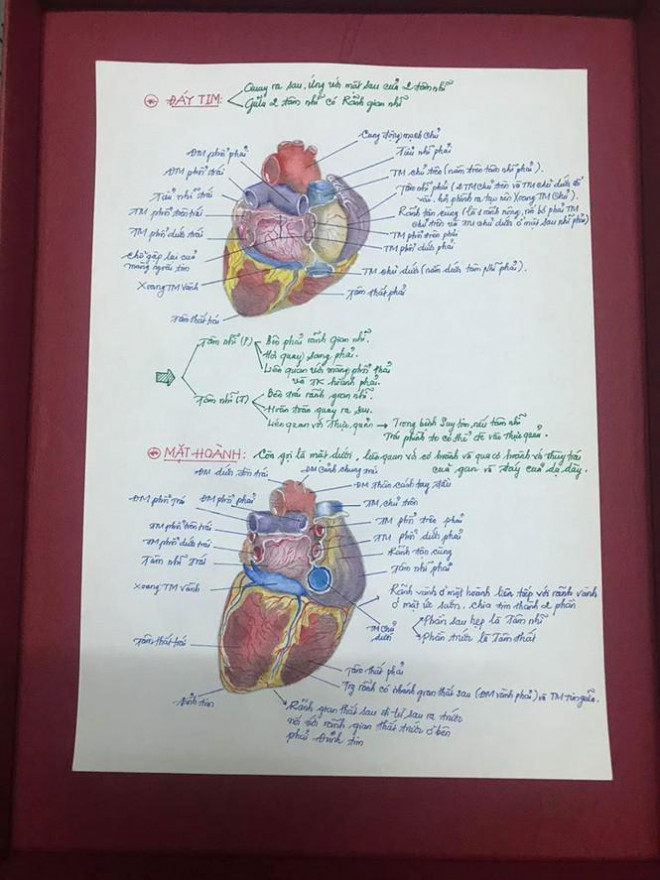 ĐÁY TIM:
Quay ra sau, ứng với mặt sau của 2 tâm nhĩ
Giữa 2 tâm nhĩ có Rãnh gian nhĩ
Cung động mạch chủ
ĐM phổi phải
Tiểu nhĩ phải
ĐM phổi trái
TM chủ trên (nằm trên tâm nhĩ phải).
Tiểu nhĩ trái
Tâm nhĩ phải (2 TM chủ trên và TM chủ dưới đổ
vào, phía sau tạo nên Xoang TM Chủ).
TM phổi trên trái
Rãnh tận cùng (là 1 rãnh nông, nối bờ phải TM
chủ trên và TM chủ dưới ở mặt sau nhĩ phải)
TM phổi dưới trái
TM phổi trên phải
TM phổi dưới phải
Chỗ gấp lại của
màng ngoài tim
TM chủ dưới (nằm dưới tâm nhĩ phải).
Xoang TM Vành
Tâm thất phải
Tâm thất trái
Tâm nhĩ (P)
Bên phải rãnh gian nhĩ.
Hơi quay sang phải.
Liên quan với màng phổi phải
và TK hoành phải.
Tâm nhĩ (T)
Bên trái rãnh gian nhĩ.
Hoàn toàn quay ra sau.
Liên quan với thực quản → Trong bệnh suy tim, nếu tâm nhĩ
Trái phình to có thể đè vào thực quản.
MẶT HOÀNH: Còn gọi là mặt dưới, liên quan với cơ hoành và qua cơ hoành với thùy trái
của gan và đáy của dạ dày.
ĐM dưới đòn trái
ĐM Cảnh chung trái
ĐM Thân cánh tay đầu
ĐM phổi Trái
ĐM phổi phải
TM chủ trên
TM phổi trên trái
TM phổi trên phải
TM phổi dưới trái
TM phổi dưới phải
Tâm nhĩ Trái
Rãnh tận cùng
Tâm nhĩ phải
Xoang TM Vành
Rãnh vành ở mặt hoành liên tiếp với rãnh vành
ở mặt ức sườn, chia tim thành 2 phần
Phần sau hẹp là Tâm nhĩ
TM Chủ
dưới
Phần trước là Tâm thất
Tâm thất trái
Tâm thất phải
Trg rãnh có nhánh gian thất sau (ĐM vành phải) và TM tim giữa.
Đỉnh tim
Rãnh gian thất sau đi từ sau ra trước
nối với rãnh gian thất trước ở bên
phải đỉnh tim